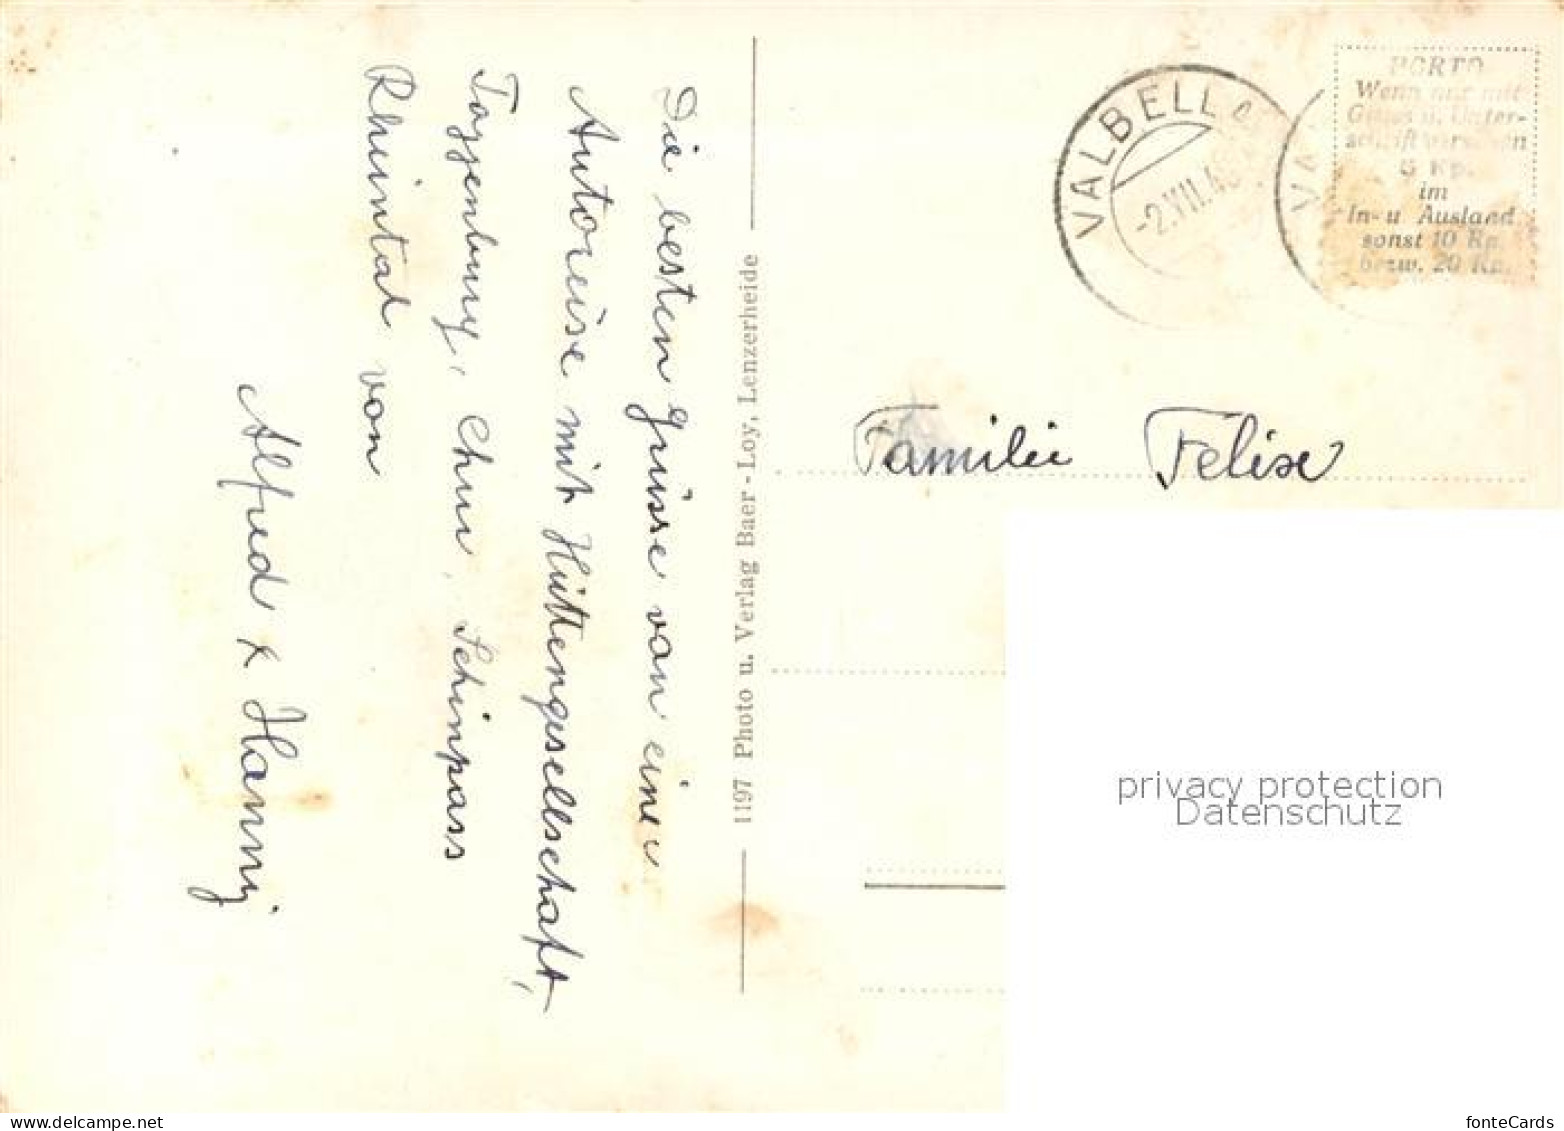 Die besten Grüsse von einer
Autoreise mit Hüttengesellschaft,
Toggenburg, Chur, Schinpass
Rheintal von
Alfred & Hanny
1197 Photo u. Verlag Baer-Loy, Lenzerheide
VALBELLA
-2.VII.4
VA
PORTO
Wenn nur mit
Gruss u. Unter-
schrift versehen
5 Rp.
im
In- u Ausland
sonst 10 Rp.
bezw. 20 Rp.
Familie Felix
privacy protection
Datenschutz
www.delcampe.net
fonteCards